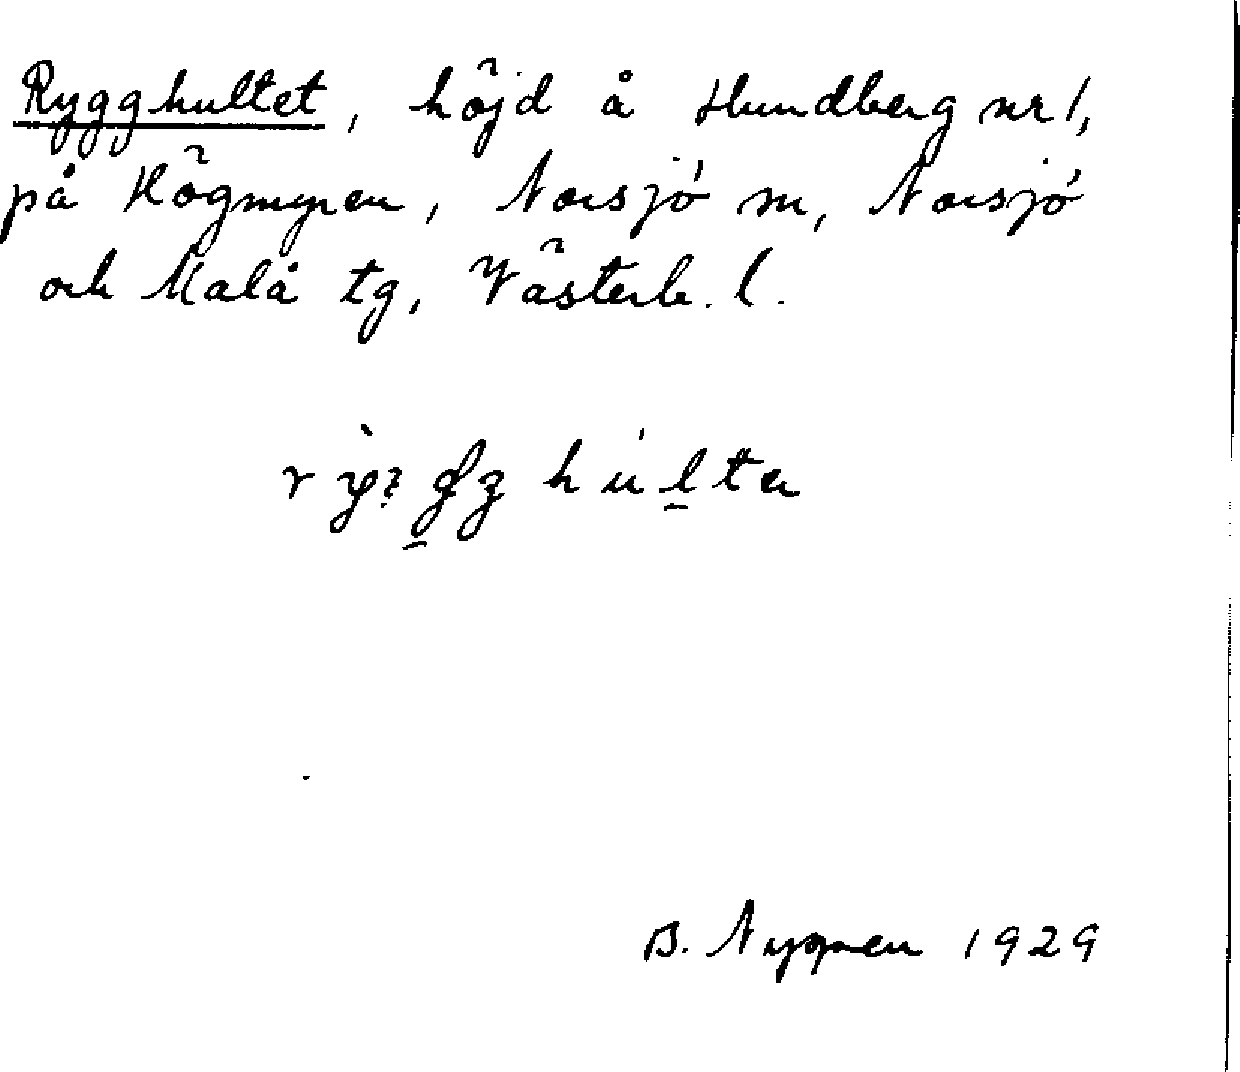 Rygghultet, höjd å Hundberg nr 1,
på Högmyren, Norsjö sn, Norsjö
och Malå tg, Västerb. l.
B. Nygren 1929